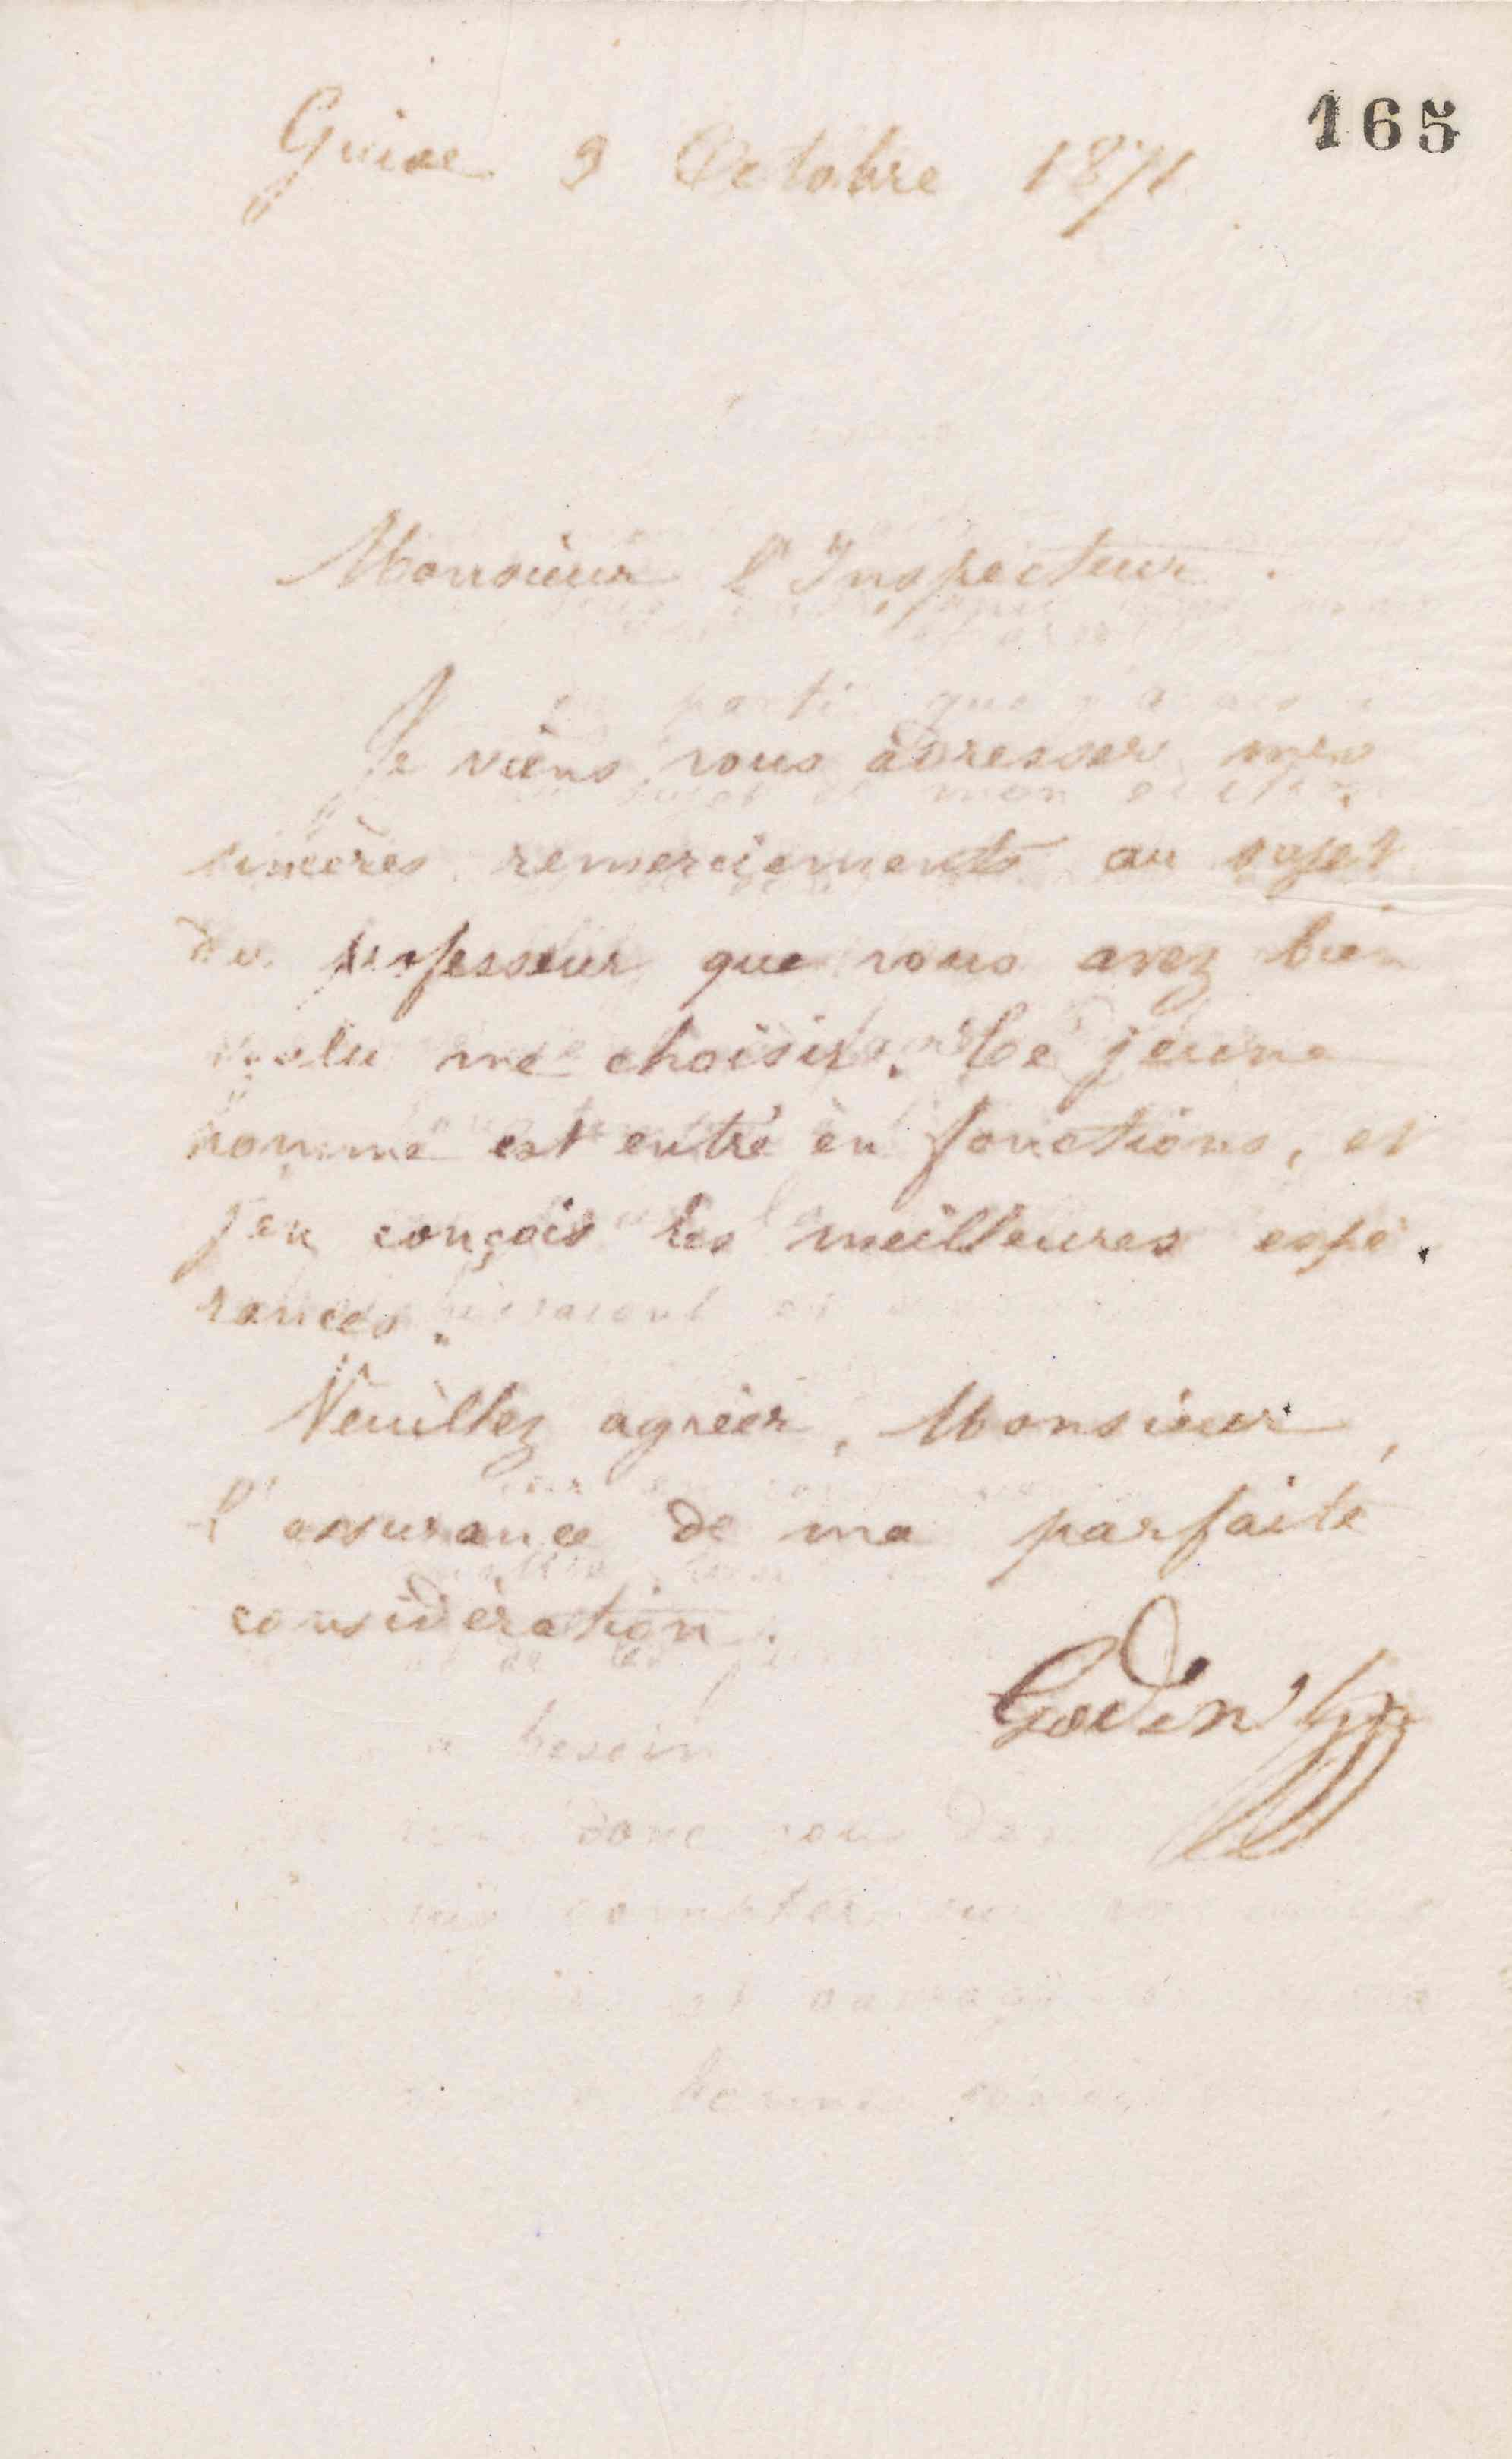 165
Guise 9 Octobre 1871
Monsieur l'Inspecteur.
Je viens vous adresser mes
sincères remerciements au sujet
du professeur que vous avez bien
voulu me choisir. Ce jeune
homme est entré en fonctions, et
j'en conçois les meilleures espé-
rances.
Veuillez agréer, Monsieur,
l'assurance de ma parfaite
considération.
Godin